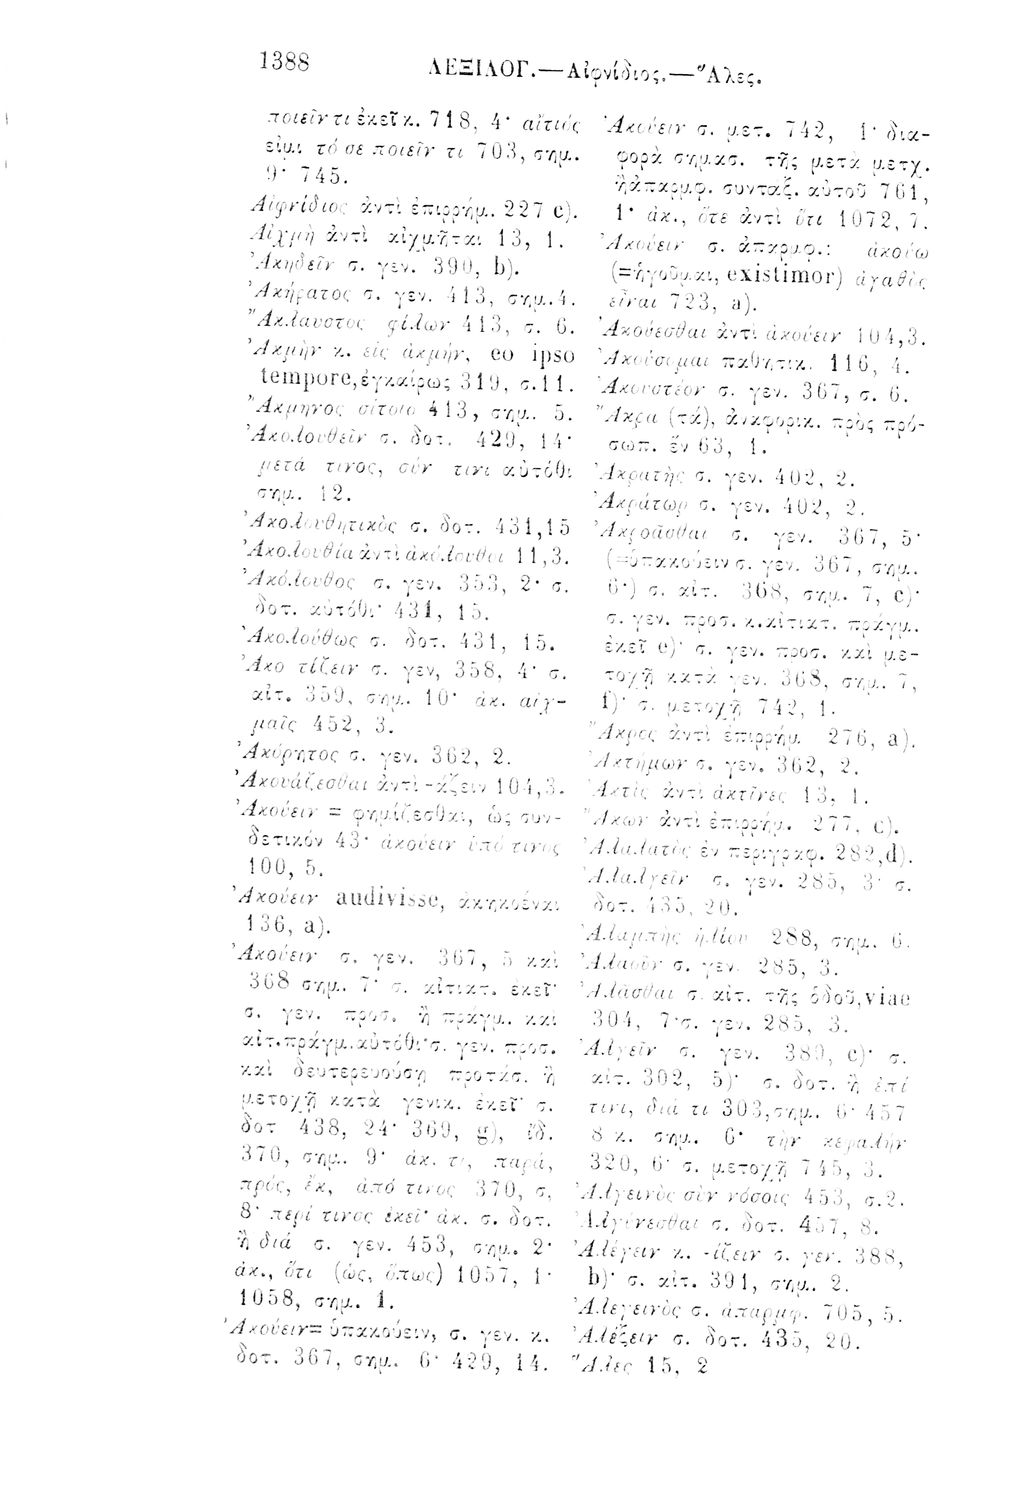 1388 ΛΕΞΙΛΟΓ.—Αἰφνίδιος.—Ἅλες.
ποιεῖν τι ἐκεῖ κ. 718, 4· αἴτιός
εἰμι τό σε ποιεῖν τι 703, σημ.
9· 745.
Αἰφνίδιος ἀντὶ ἐπιρρήμ. 227 c).
Αἰχμὴ ἀντὶ αἰχμῆται 13, 1.
Ἀκηδεῖν σ. γεν. 390, b).
Ἀκήρατος σ. γεν. 413, σημ. 4.
Ἄκλαυστος φίλων 413, σ. 6.
Ἀκμὴν κ. εἰς ἀκμήν, eo ipso
tempore, ἐγκαίρως 319, σ. 11.
Ἄκμηνος σίτοιο 413, σημ. 5.
Ἀκολουθεῖν σ. δοτ. 429, 14·
μετά τινος, σύν τινι αὐτόθι
σημ. 12.
Ἀκολουθητικὸς σ. δοτ. 431,15
Ἀκολουθία ἀντὶ ἀκόλουθοι 11,3.
Ἀκόλουθος σ. γεν. 353, 2· σ.
δοτ. αὐτόθι· 431, 15.
Ἀκολούθως σ. δοτ. 431, 15.
Ἀκοντίζειν σ. γεν, 358, 4· σ.
αἰτ. 359, σημ. 10· ἀκ. αἰχ-
μαῖς 452, 3.
Ἀκόρητος σ. γεν. 362, 2.
Ἀκουάζεσθαι ἀντὶ -άζειν 104,3.
Ἀκούειν = φημίζεσθαι, ὡς συν-
δετικόν 43· ἀκούειν ὑπό τινος
100, 5.
Ἀκούειν audivisse, ἀκηκοέναι
136, a).
Ἀκούειν σ. γεν. 367, 5 καὶ
368 σημ. 7· σ. αἰτιατ. ἐκεῖ·
σ. γεν. προσ. ἢ πραγμ. καὶ
αἰτ. πράγμ. αὐτόθι· σ. γεν. προσ.
καὶ δευτερευούσῃ προτάσ. ἢ
μετοχῇ κατὰ γενικ. ἐκεῖ· σ.
δοτ 438, 24· 369, g), ἰδ.
370, σημ. 9· ἀκ. τι, παρά,
πρός, ἐκ, ἀπό τινος 370, σ,
8· περί τινος ἐκεῖ· ἀκ. σ. δοτ.
ἢ διά σ. γεν. 453, σημ. 2·
ἀκ., ὅτι (ὡς, ὅπως) 1057, 1·
1058, σημ. 1.
Ἀκούειν= ὑπακούειν, σ. γεν. κ.
δοτ. 367, σημ. 6· 429, 14.
Ἀκούειν σ. μετ. 742, 1· δια-
φορὰ σημασ. τῆς μετὰ μετχ.
ἢ ἀπαρμφ. συντάξ. αὐτοῦ 761,
1· ἀκ., ὅτε ἀντὶ ὅτι 1072, 7.
Ἀκούειν σ. ἀπαρμφ.: ἀκούω
(=ἡγοῦμαι, existimor) ἀγαθὸς
εἶναι 723, a).
Ἀκούεσθαι ἀντὶ ἀκούειν 104,3.
Ἀκούσομαι παθητικ. 116, 4.
Ἀκουστέον σ. γεν. 367, σ. 6.
Ἄκρα (τά), ἀναφορικ. πρὸς πρό-
σωπ. ἓν 63, 1.
Ἀκρατὴς σ. γεν. 402, 2.
Ἀκράτωρ σ. γεν. 402, 2.
Ἀκροᾶσθαι σ. γεν. 367, 5·
(=ὑπακούειν σ. γεν. 367, σημ.
6·) σ. αἰτ. 368, σημ. 7, c)·
σ. γεν. προσ. κ. αἰτιατ. πράγμ.
ἐκεῖ e)· σ. γεν. προσ. καὶ με-
τοχῇ κατὰ γεν. 368, σημ. 7,
f)· σ. μετοχῇ 742, 1.
Ἄκρος ἀντὶ ἐπιρρήμ. 276, a).
Ἀκτήμων σ. γεν. 362, 2.
Ἀκτὶς ἀντὶ ἀκτῖνες 13, 1.
Ἄκων ἀντὶ ἐπιρρήμ. 277, c).
Ἀλάλατὸς ἐν περιγραφ. 282,d).
Ἀλαλγεῖν σ. γεν. 285, 3· σ.
δοτ. 435, 20.
Ἀλαμπὴς ἡλίου 288, σημ. 6.
Ἀλαοῦν σ. γεν. 285, 3.
Ἀλᾶσθαι σ. αἰτ. τῆς ὁδοῦ, viae
304, 7· σ. γεν. 285, 3.
Ἀλγεῖν σ. γεν. 389, c)· σ.
αἰτ. 302, 5)· σ. δοτ. ἢ ἐπί
τινι, διά τι 303, σημ. 6· 457
8 κ. σημ. 6· τὴν κεφαλὴν
320, 6· σ. μετοχῇ 745, 3.
Ἀλγεινὸς σὺν νόσοις 453, σ. 2.
Ἀλγύνεσθαι σ. δοτ. 457, 8.
Ἀλέγειν κ. -ίζειν σ. γεν. 388,
b)· σ. αἰτ. 391, σημ. 2.
Ἀλεγεινὸς σ. ἀπαρμφ. 705, 5.
Ἀλέξειν σ. δοτ. 435, 20.
Ἅλες 15, 2